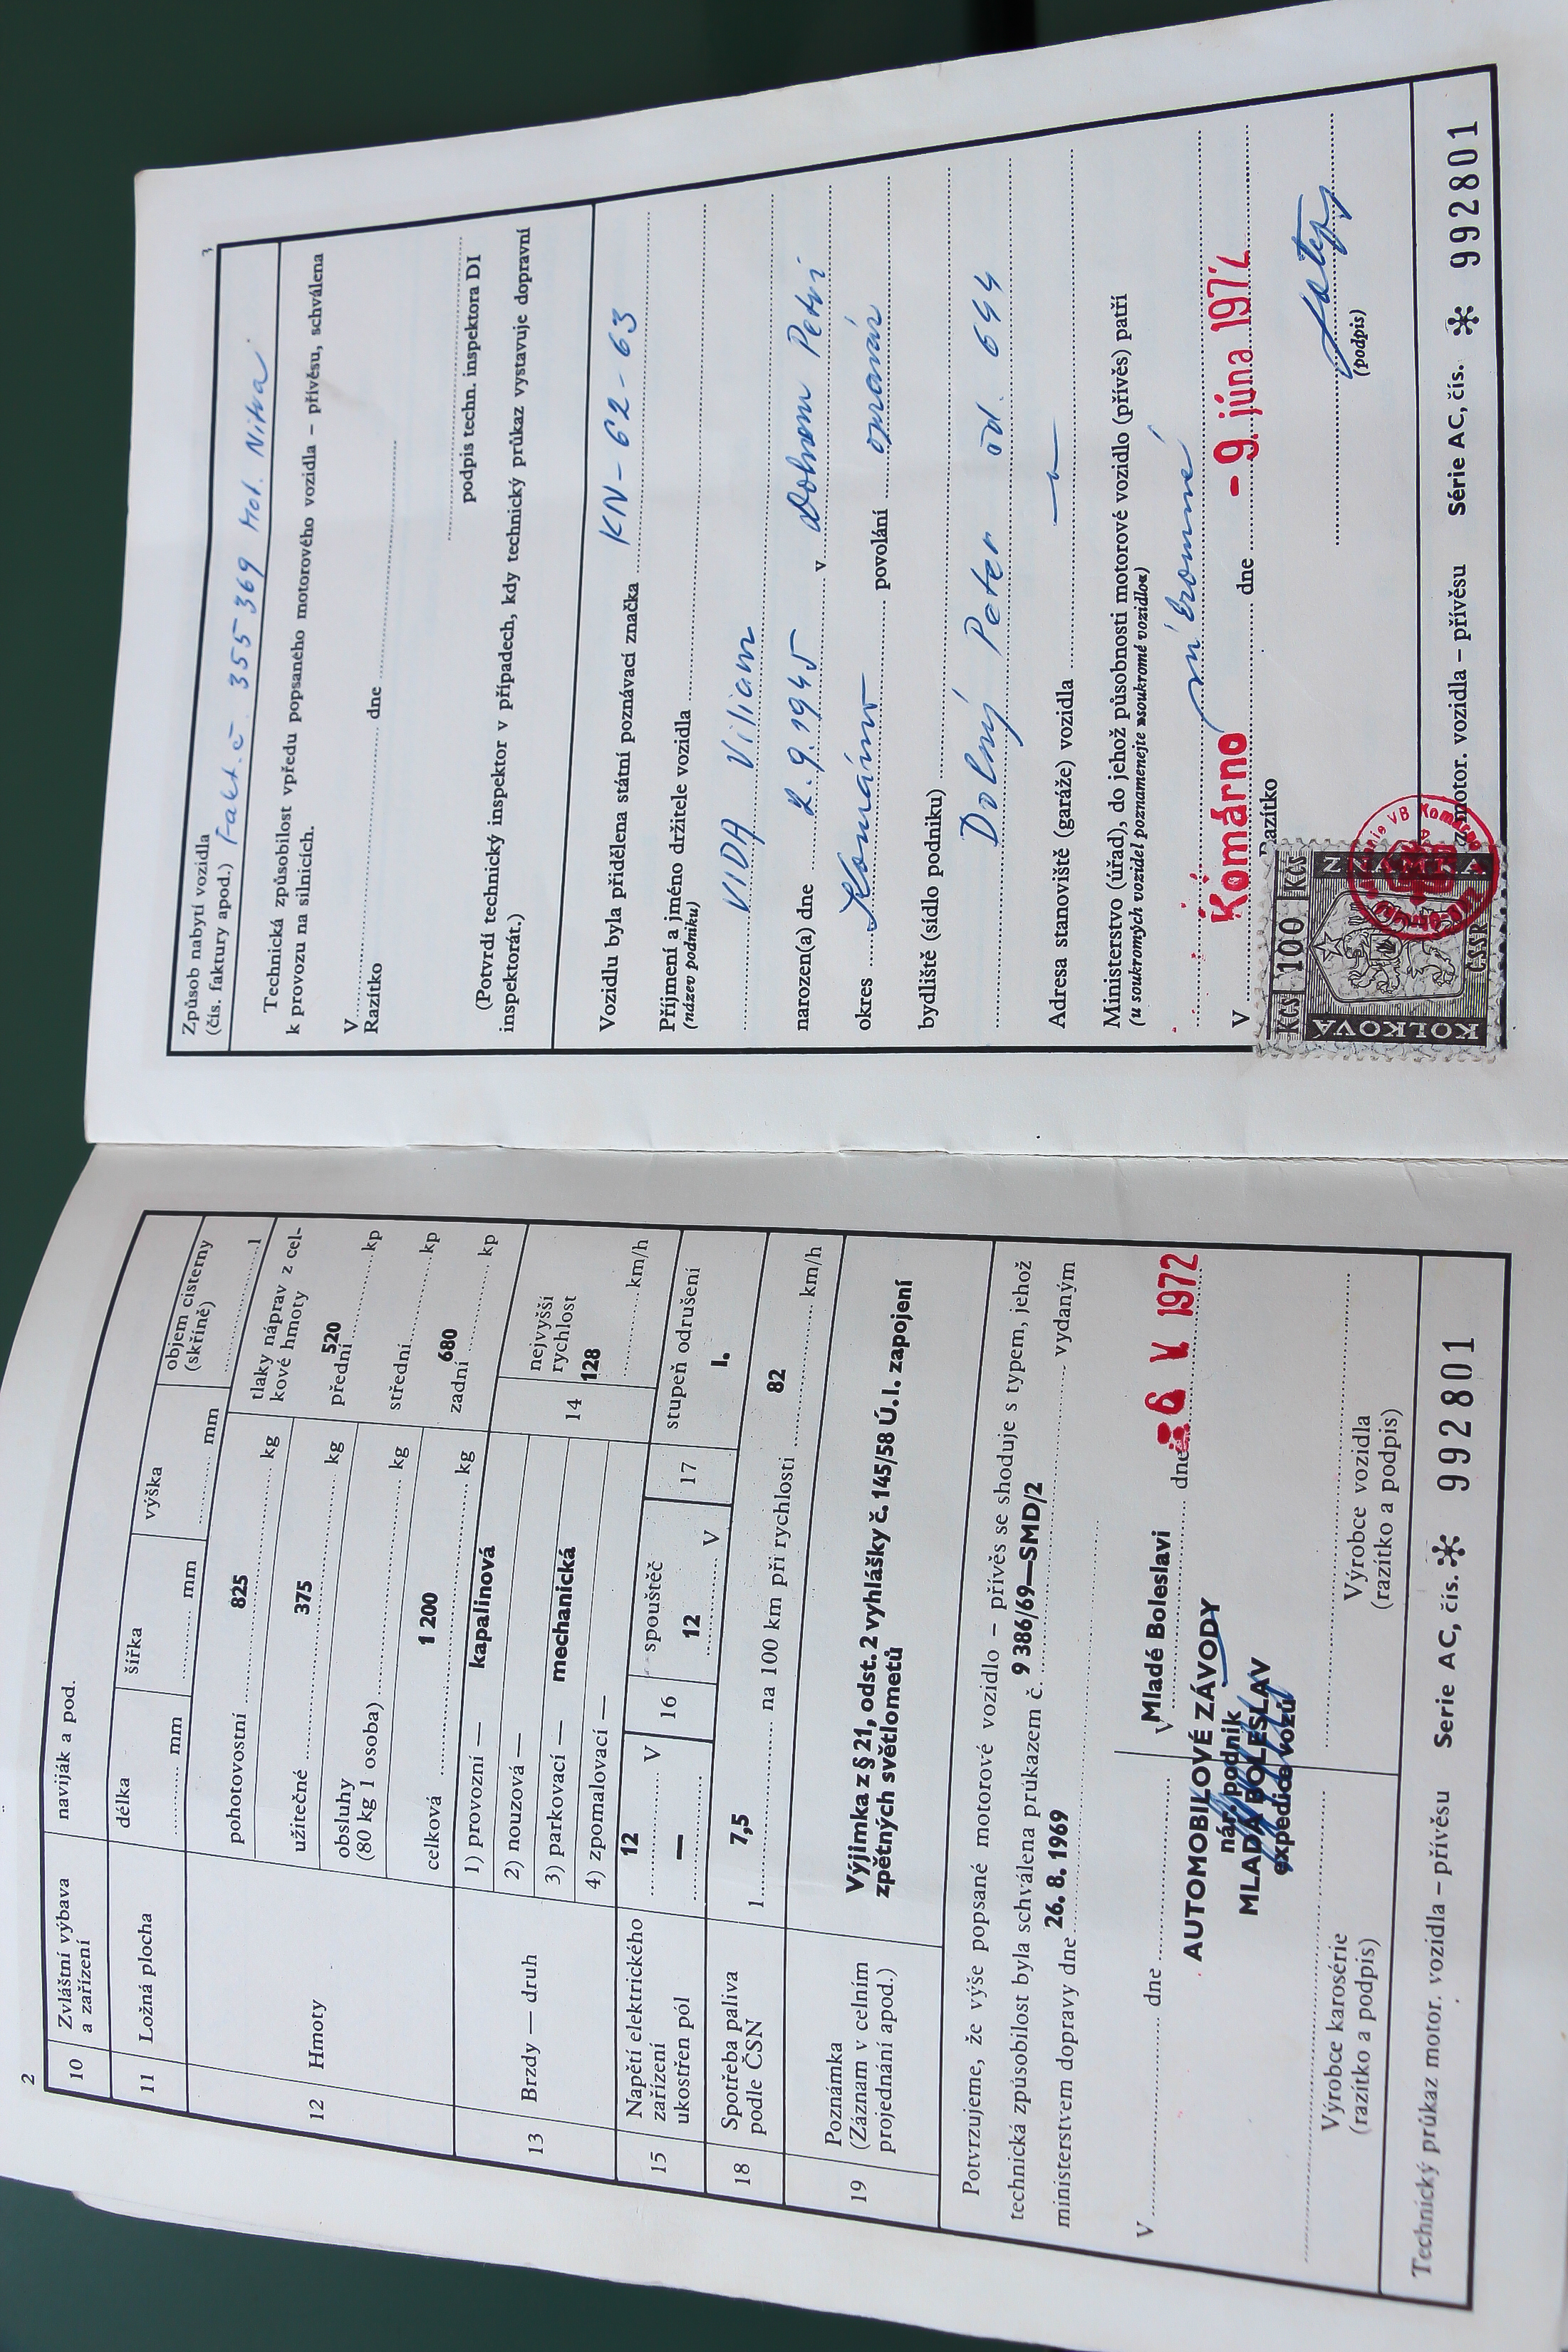 2
10 Zvláštní výbava a zařízení naviják a pod.
11 Ložná plocha délka ........ mm šířka ........ mm výška ........ mm objem cisterny (skříně) ........ l
12 Hmoty
pohotovostní 825 kg
užitečné 375 kg
obsluhy (80 kg 1 osoba) ........ kg
celková 1 200 kg
tlaky náprav z celkové hmoty
přední 520 kp
střední ........ kp
zadní 680 kp
13 Brzdy — druh
1) provozní — kapalinová
2) nouzová —
3) parkovací — mechanická
4) zpomalovací —
14 nejvyšší rychlost 128 km/h
15 Napětí elektrického zařízení 12 V
ukostřen pól —
16 spouštěč 12 V
17 stupeň odrušení I.
18 Spotřeba paliva podle ČSN 7,5 l na 100 km při rychlosti 82 km/h
19 Poznámka (Záznam v celním projednání apod.)
Výjimka z § 21, odst. 2 vyhlášky č. 145/58 Ú. l. zapojení
zpětných světlometů
Potvrzujeme, že výše popsané motorové vozidlo – přívěs se shoduje s typem, jehož
technická způsobilost byla schválena průkazem č. 9 386/69—SMD/2 vydaným
ministerstvem dopravy dne 26. 8. 1969
V ........ dne ........
V Mladé Boleslavi dne 6 V 1972
AUTOMOBILOVÉ ZÁVODY
nár. podnik
MLADÁ BOLESLAV
expedice vozů
Výrobce karosérie
(razítko a podpis)
Výrobce vozidla
(razítko a podpis)
Technický průkaz motor. vozidla – přívěsu Serie AC, čís. 992801
3
Způsob nabytí vozidla
(čís. faktury apod.) Fakt. č. 355369 Mot. Nitra
Technická způsobilost vpředu popsaného motorového vozidla – přívěsu, schválena
k provozu na silnicích.
V ........ dne ........
Razítko
podpis techn. inspektora DI
(Potvrdí technický inspektor v případech, kdy technický průkaz vystavuje dopravní
inspektorát.)
Vozidlu byla přidělena státní poznávací značka KN-62-63
Příjmení a jméno držitele vozidla
(název podniku)
VIDA Viliam
narozen(a) dne 2.9.1945 v Dolnom Petri
okres Komárno povolání opravár
bydliště (sídlo podniku)
Dolný Peter čd. 644
Adresa stanoviště (garáže) vozidla
Ministerstvo (úřad), do jehož působnosti motorové vozidlo (přívěs) patří
(u soukromých vozidel poznamenejte »soukromé vozidlo«)
V Komárno dne - 9. júna 1972
Razítko
(podpis)
KČS 100 KČS
KOLKOVÁ
ČSSR
z motor. vozidla – přívěsu Série AC, čís. 992801